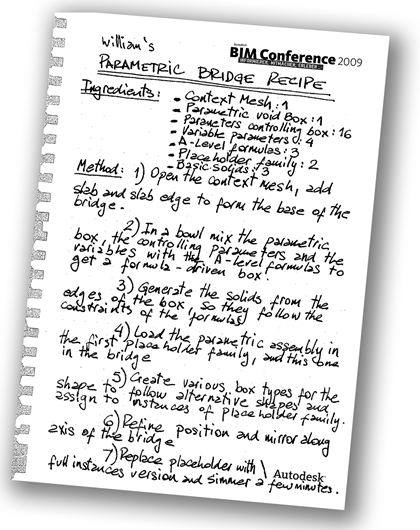 William's
Autodesk
BIM Conference 2009
INFORMIEREN. MITMACHEN. ERLEBEN.
PARAMETRIC BRIDGE RECIPE
Ingredients:
- Context Mesh: 1
- Parametric void Box: 1
- Parameters controlling box: 16
- Variable parameters: 4
- A-Level formulas: 3
- Placeholder family: 2
- Basic solids: 3
Method: 1) Open the context mesh, add
slab and slab edge to form the base of the
bridge.
2) In a bowl mix the parametric
box, the controlling parameters and the
variables with the A-level formulas to
get a formula-driven box.
3) Generate the solids from the
edges of the box, so they follow the
constraints of the formulas
4) Load the parametric assembly in
the first placeholder family, and this one
in the bridge
5) Create various box types for the
shape to follow alternative shapes and
assign to instances of placeholder family.
6) Refine position and mirror along
axis of the bridge
7) Replace placeholder with
full instances version and simmer a few minutes.
Autodesk